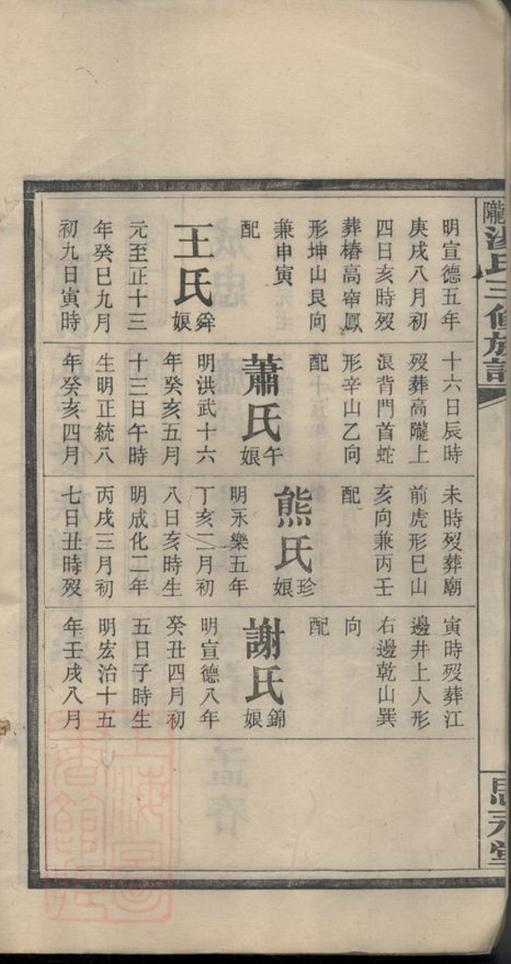 隴
氏三修族譜
明宣德五年
庚戌八月初
四日亥時歿
葬椿高帘鳳
形坤山艮向
兼申寅
配
王氏舜娘
元至正十三
年癸巳九月
初九日寅時
十六日辰時
歿葬高隴上
浪背門首蛇
形辛山乙向
配
蕭氏午娘
明洪武十六
年癸亥五月
十三日午時
生明正統八
年癸亥四月
未時歿葬廟
前虎形巳山
亥向兼丙壬
配
熊氏珍娘
明永樂五年
丁亥二月初
八日亥時生
明成化二年
丙戌三月初
七日丑時歿
寅時歿葬江
邊井上人形
右邊乾山巽
向
配
謝氏錦娘
明宣德八年
癸丑四月初
五日子時生
明宏治十五
年壬戌八月
思元堂
上海圖書館藏